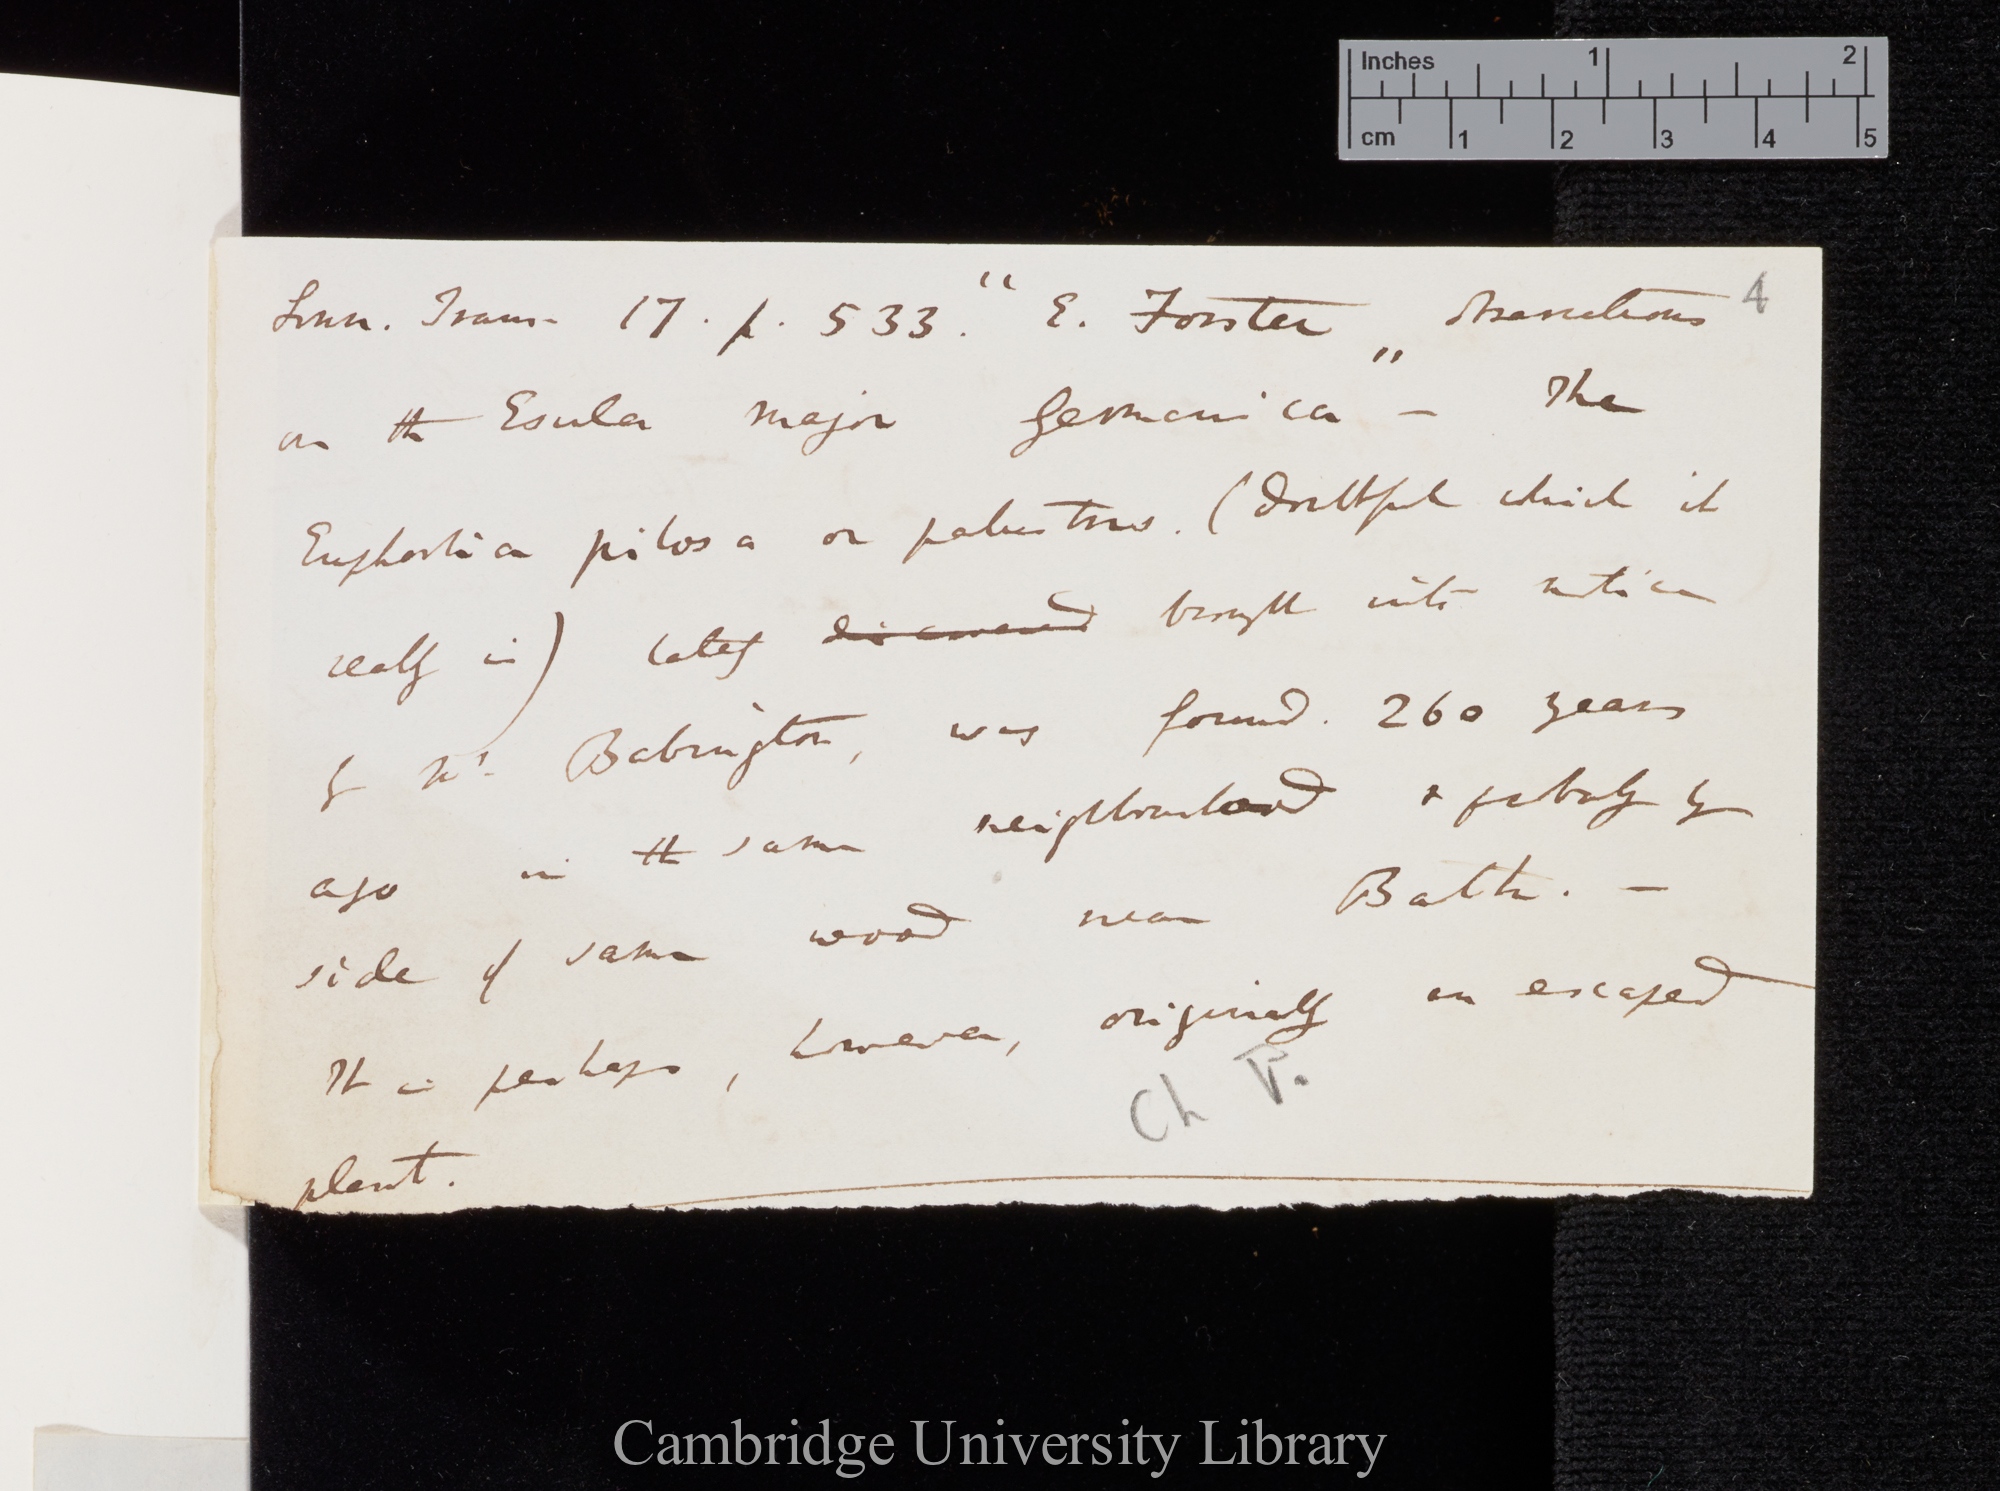 Inches 1 2
cm 1 2 3 4 5
4
Linn. Trans. 17. p. 533. " E. Forster observations
on the Esula major Germanica" — The
Euphorbia pilosa or palustris. (doubtful which it
really is) lately discovered brought into notice
by Mr. Babington, was found. 260 years
ago in the same neighbourhood & probably by
side of same wood near Bath. —
It is perhaps, however, originally an escaped
plant.
Ch V.
Cambridge University Library